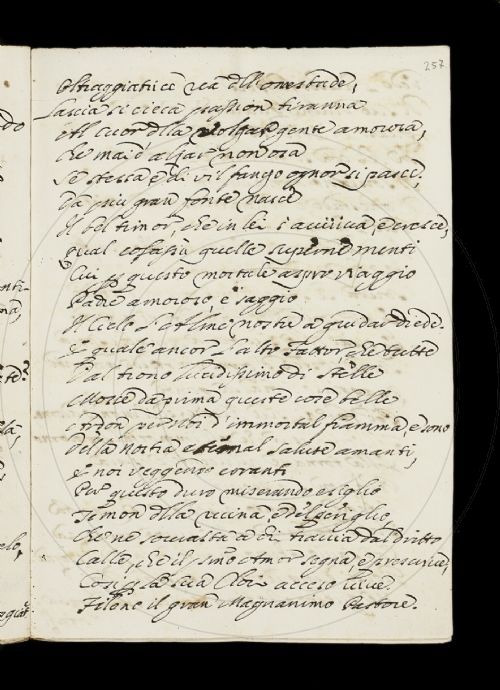 257
Oltraggiatrice rea dell'onestade,
Lascia sì cieca passion tiranna
Al cuor della volgar gente amorosa,
Che mai d'alzar non osa
Se stessa, e di vil fango ognor si pasce.
Da più gran fonte nasce
Il bel timor, che in lei s'avviva, e cresce,
qual è quelle supreme menti
Cui per questo mortale aspro viaggio
Padre amoroso, e saggio
Il Cielo l'alme nostre a guidar diede.
E quale ancor l'alto Fattor, che tutte
Dal trono lucidissimo di stelle
Mosse da prima queste cose belle
d'immortal fiamma, e sono
Della nostra eternal salute amanti,
E noi veggendo erranti
Per questo duro miserando esiglio
Temon della ruina, e del periglio,
Che ne sovrasta a chi traccia dal dritto
Calle, che il sommo Amor segna, e prescrive,
Così per la sua Clori acceso vive
Fileno il gran Magnanimo Pastore.